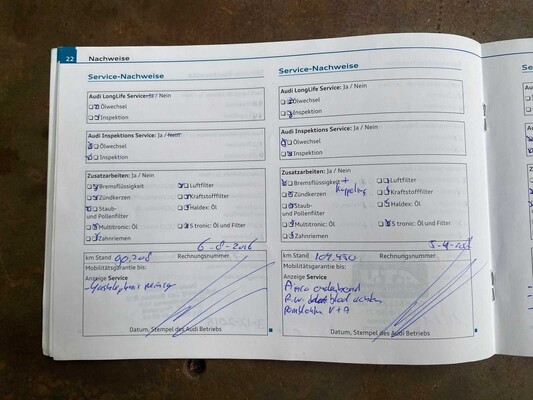 22 Nachweise
Service-Nachweise
Audi LongLife Service: Ja / Nein
Ölwechsel
Inspektion
Audi Inspektions Service: Ja / Nein
Ölwechsel
Inspektion
Zusatzarbeiten: Ja / Nein
Bremsflüssigkeit Luftfilter
Zündkerzen Kraftstofffilter
Staub- Haldex: Öl
und Pollenfilter
Multitronic: Öl S tronic: Öl und Filter
Zahnriemen
6-8-2016
km Stand 90.208 Rechnungsnummer
Mobilitätsgarantie bis:
Anzeige Service
Datum, Stempel des Audi Betriebs
Service-Nachweise
Audi LongLife Service: Ja / Nein
Ölwechsel
Inspektion
Audi Inspektions Service: Ja / Nein
Ölwechsel
Inspektion
Zusatzarbeiten: Ja / Nein
Bremsflüssigkeit + Luftfilter
Zündkerzen Koppeling Kraftstofffilter
Staub- Haldex: Öl
und Pollenfilter
Multitronic: Öl S tronic: Öl und Filter
Zahnriemen
km Stand 109.430 Rechnungsnummer
Mobilitätsgarantie bis:
Anzeige Service
V+A
Datum, Stempel des Audi Betriebs